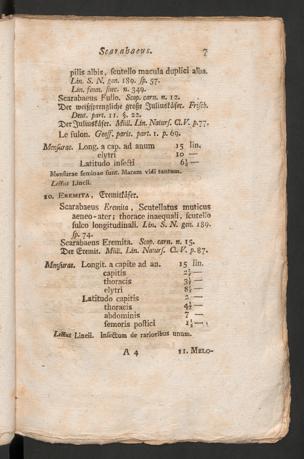 Scarabaeus. 7
pilis albis, scutello macula duplici alba.
Lin. S. N. gen. 189. sp. 57.
Lin. faun. suec. n. 349.
Scarabaeus Fullo. Scop. carn. n. 12.
Der weißsprengliche große Juliuskäfer. Frisch.
Deut. part. 11. §. 22.
Der Juliuskäfer. Müll. Lin. Naturs. Cl. V. p. 77.
Le fulon. Geoff. paris. part. 1. p. 69.
Mensurae. Long. a cap. ad anum 15 lin.
elytri 10 —
Latitudo insecti 6½ —
Mensurae feminae sunt. Marem vidi tantum.
Lectus Lincii.
10. EREMITA, Eremitkäfer.
Scarabaeus Eremita, Scutellatus muticus
aeneo-ater; thorace inaequali, scutello
sulco longitudinali. Lin. S. N. gen. 189.
sp. 74.
Scarabaeus Eremita. Scop. carn. n. 15.
Der Eremit. Müll. Lin. Naturs. Cl. V. p. 87.
Mensurae. Longit. a capite ad an. 15 lin.
capitis 2½ —
thoracis 3½ —
elytri 8½ —
Latitudo capitis 2 —
thoracis 4½ —
abdominis 7 —
femoris postici 1½ —
Lectus Lincii. Insectum de rarioribus unum.
A 4 11. MELO-